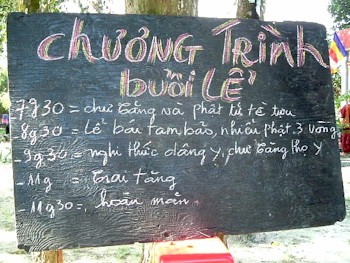 chương Trình
buổi Lễ
-7g30 = chư tăng và phật tử tề tựu
8g30 = Lễ bái tam bảo, nhiễu phật 3 vòng
-9g30 = nghi thức dâng y, chư tăng thọ y
-11g = trai tăng
-11g30 = hoàn mãn